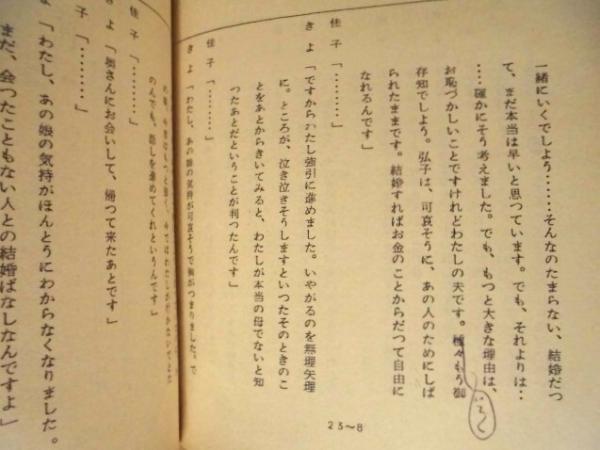 一緒にいくでしよう……そんなのたまらない、結婚だつ
て、まだ本当は早いと思つています。でも、それよりは‥
‥‥確かにそう考えました。でも、もつと大きな理由は、
お恥づかしいことですけれどわたしの夫です。種々もう御
いろ〱
存知でしよう。弘子は、可哀そうに、あの人のためにしば
られたままです。結婚すればお金のことからだつて自由に
なれるんです」
佳子「………」
きよ「ですからわたし強引に進めました。いやがるのを無理矢理
に。ところが、泣き泣きそうしますといつたそのときのこ
とをあとからきいてみると、わたしが本当の母でないと知
つたあとだということが判つたんです」
佳子「………」
きよ「わたし、あの娘の気持が可哀そうで胸がつまりました。で
のんでも、話しを進めてくれというんです」
佳子「………」
きよ「奥さんにお会いして、帰つて来たあとです」
子「………」
よ「わたし、あの娘の気持がほんとうにわからなくなりました。
まだ、会つたこともない人との結婚ばなしなんですよ」
23〜8